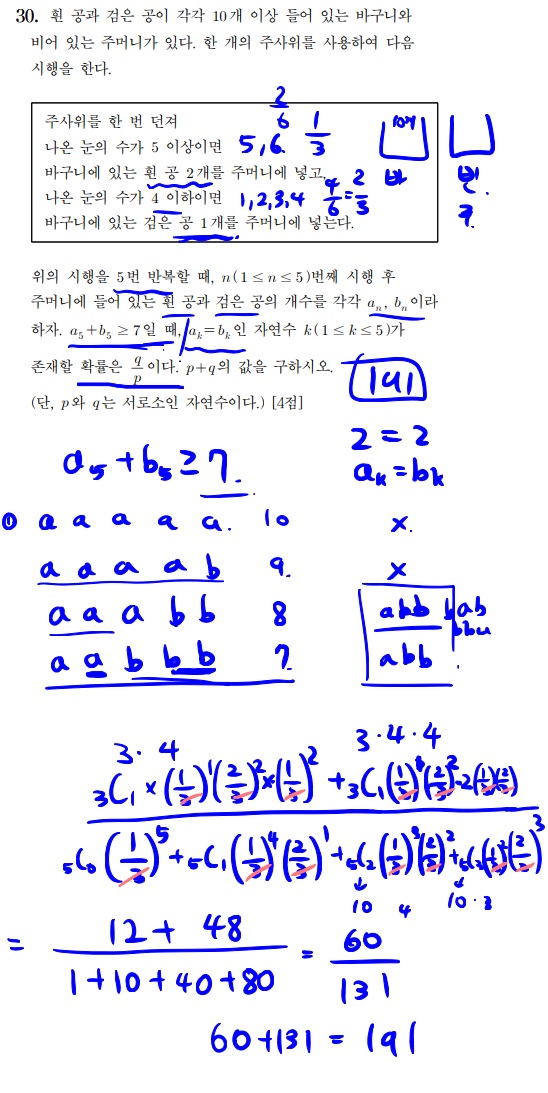 30. 흰 공과 검은 공이 각각 10개 이상 들어 있는 바구니와
비어 있는 주머니가 있다. 한 개의 주사위를 사용하여 다음
시행을 한다.
2/6 1/3
주사위를 한 번 던져
나온 눈의 수가 5 이상이면 5, 6.
바구니에 있는 흰 공 2개를 주머니에 넣고,
나온 눈의 수가 4 이하이면 1, 2, 3, 4 4/6 = 2/3
바구니에 있는 검은 공 1개를 주머니에 넣는다.
10개
바
빈
주
위의 시행을 5번 반복할 때, n(1≤n≤5)번째 시행 후
주머니에 들어 있는 흰 공과 검은 공의 개수를 각각 aₙ, bₙ이라
하자. a₅+b₅≥7일 때, aₖ=bₖ인 자연수 k(1≤k≤5)가
존재할 확률은 q/p이다. p+q의 값을 구하시오.
(단, p와 q는 서로소인 자연수이다.) [4점]
191
2 = 2
a₅ + b₅ ≥ 7.
aₖ = bₖ
① a a a a a. 10 x.
a a a a b 9. x
a a a b b 8 abb bab
bba
a a b b b 7. abb
3·4 3·4·4
₃C₁×(1/3)¹(2/3)²×(1/3)² + ₃C₁(1/3)¹(2/3)²·2(1/3)(2/3)
₅C₀(1/3)⁵+₅C₁(1/3)⁴(2/3)¹+₅C₂(1/3)³(2/3)²+₅C₃(1/3)²(2/3)³
10 4 10·8
= 12 + 48 / 1+10+40+80 = 60/131
60+131 = 191